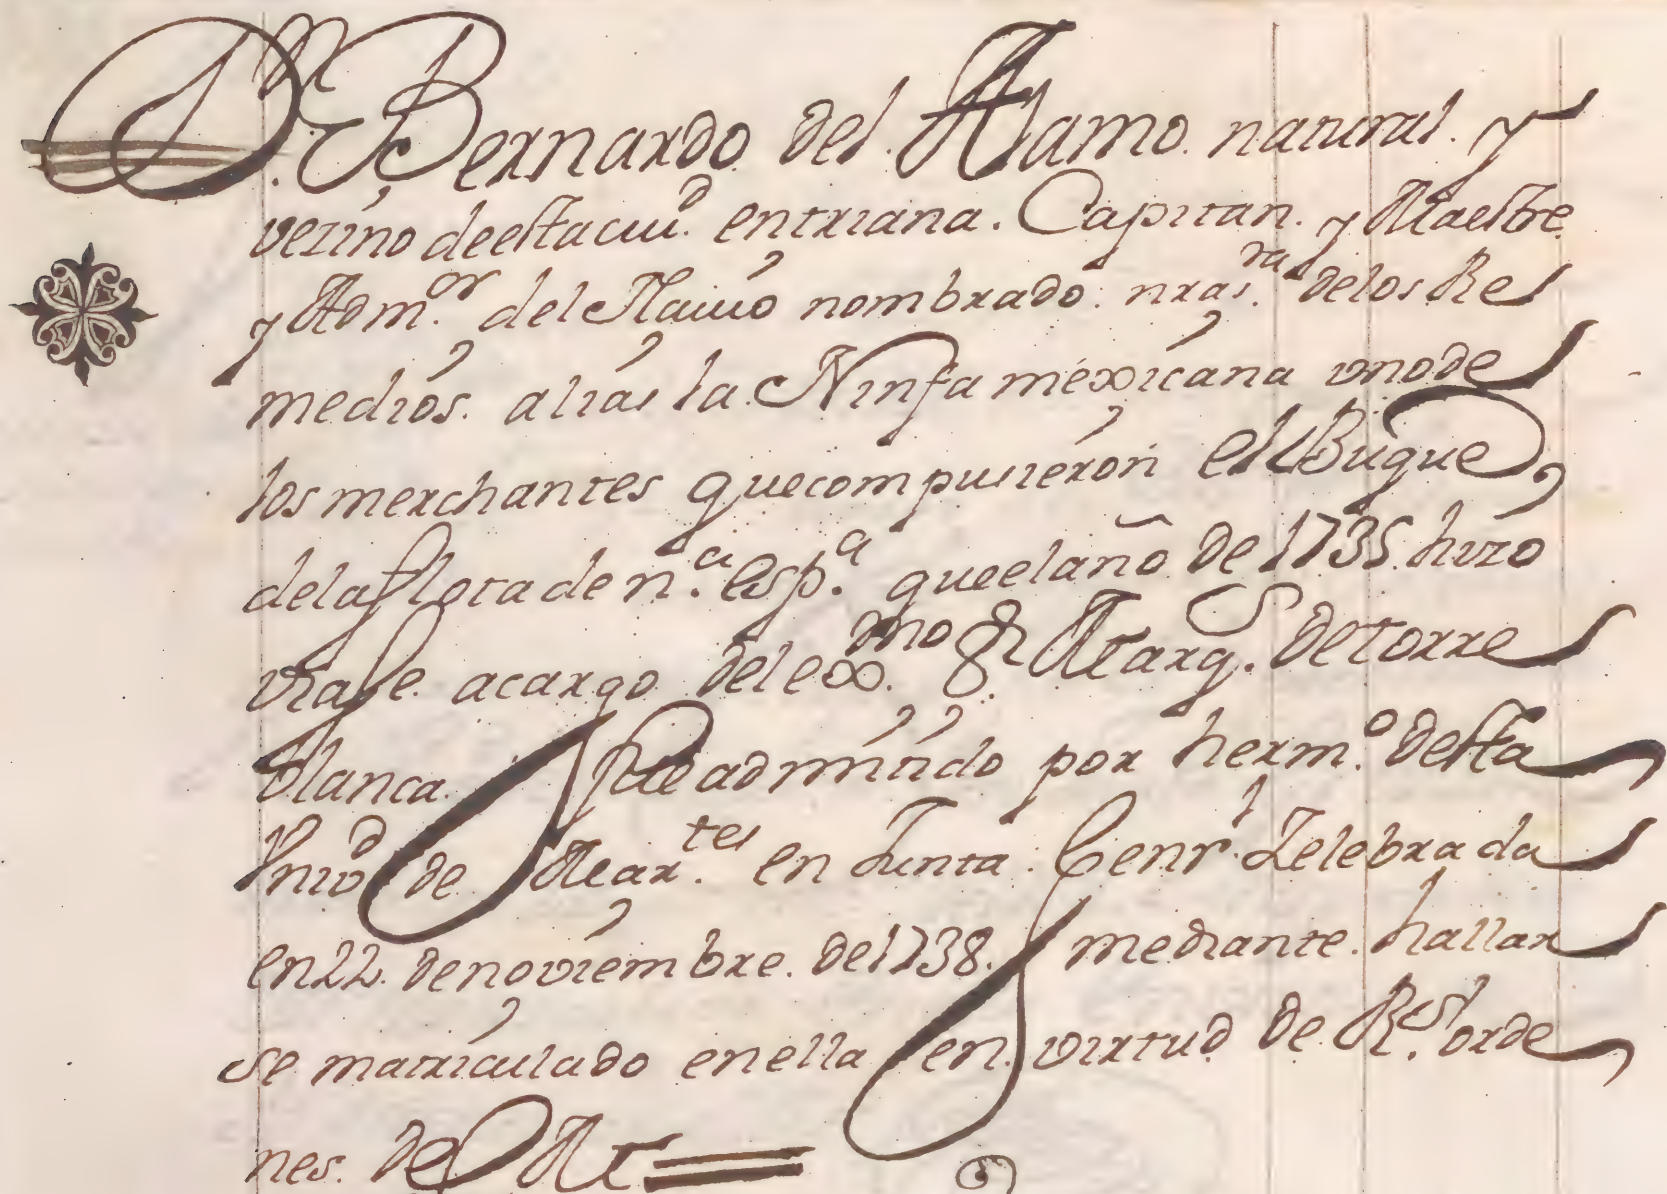 Dn. Bernardo del Alamo natural. y
vezino de esta ciud. en triana. Capitan. y Maestre
y Adm.or del Navio nombrado: nra s.ra de los Re
medios. alias la Ninfa mexicana uno de
los merchantes que compusieron el Buque
de la flota de n.a esp.a que el año de 1735. hizo
viaje. a cargo del exmo. Sr. Marqs. de torre
blanca. fue admitido por herm.o desta
Univd. de Mar.tes en Junta. Genrl. Zelebrada
en 22. de noviembre. de 1738. mediante. hallar
se matriculado en ella en virtud de Rs. orde
nes. de M